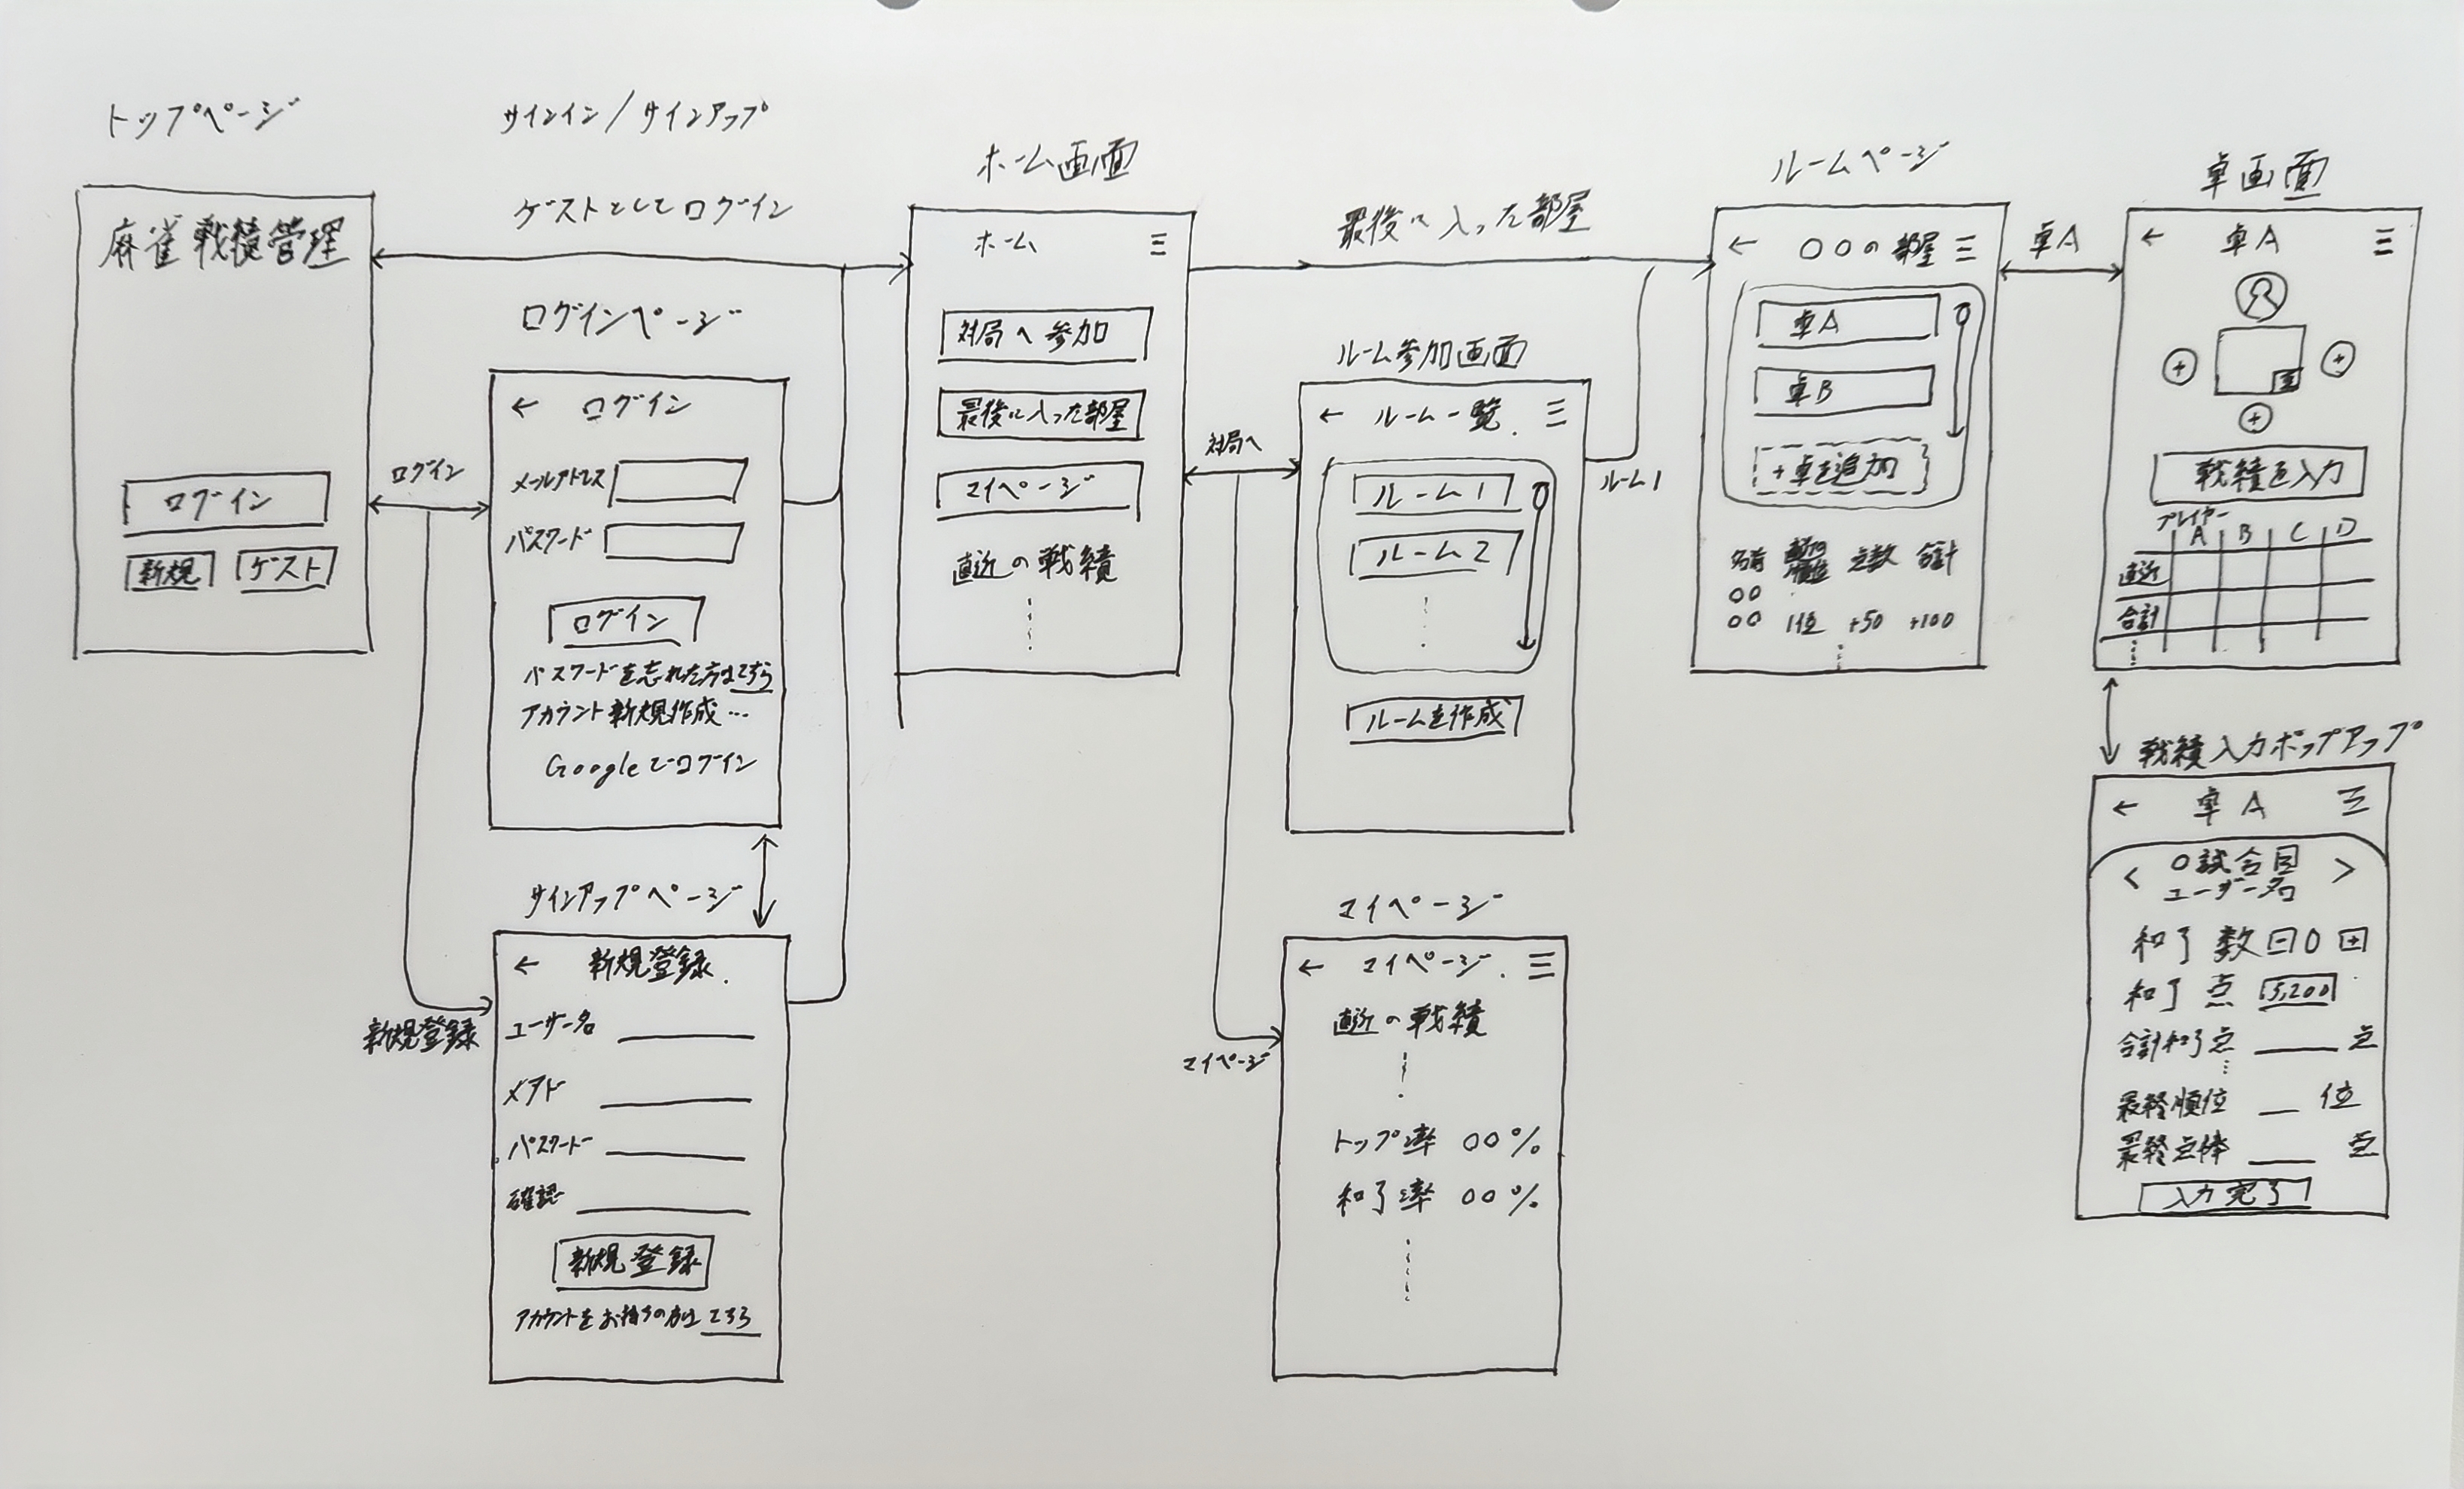 トップページ
麻雀戦績管理
ログイン
新規 ゲスト
サインイン/サインアップ
ゲストとしてログイン
ログイン
ログインページ
← ログイン
メールアドレス
パスワード
ログイン
パスワードを忘れた方はこちら
アカウント新規作成…
Googleでログイン
新規登録
サインアップページ
← 新規登録.
ユーザー名
メアド
パスワード
確認
新規登録
アカウントをお持ちの方は こちら
ホーム画面
ホーム ☰
対局へ参加
最後に入った部屋
マイページ
直近の戦績
最後に入った部屋
対局へ
ルーム参加画面
← ルーム一覧. ☰
ルーム1
ルーム2
ルームを作成
ルーム1
マイページ
マイページ
← マイページ. ☰
直近の戦績
トップ率 〇〇%
和了率 〇〇%
ルームページ
← 〇〇の部屋 ☰
卓A
卓B
+卓を追加
名前 点数 合計
〇〇
〇〇 1位 +50 +100
卓A
卓画面
← 卓A ☰
+ +
+
戦績を入力
プレイヤー
A B C D
直近
合計
戦績入力ポップアップ
← 卓A ☰
< 〇試合目 >
ユーザー名
和了数 - 0 +
和了点 5,200
合計和了点 ＿ 点
最終順位 ＿ 位
最終点棒 ＿ 点
入力完了